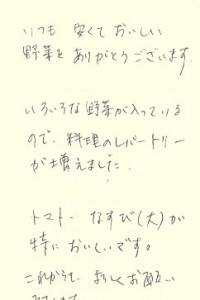 いつも 安くて おいしい
野菜を ありがとうございます.
いろいろな 野菜が入っている
ので、料理のレパートリー
が増えました.
トマト. なすび(大)が
特に おいしいです。
これからも よろしくお願い